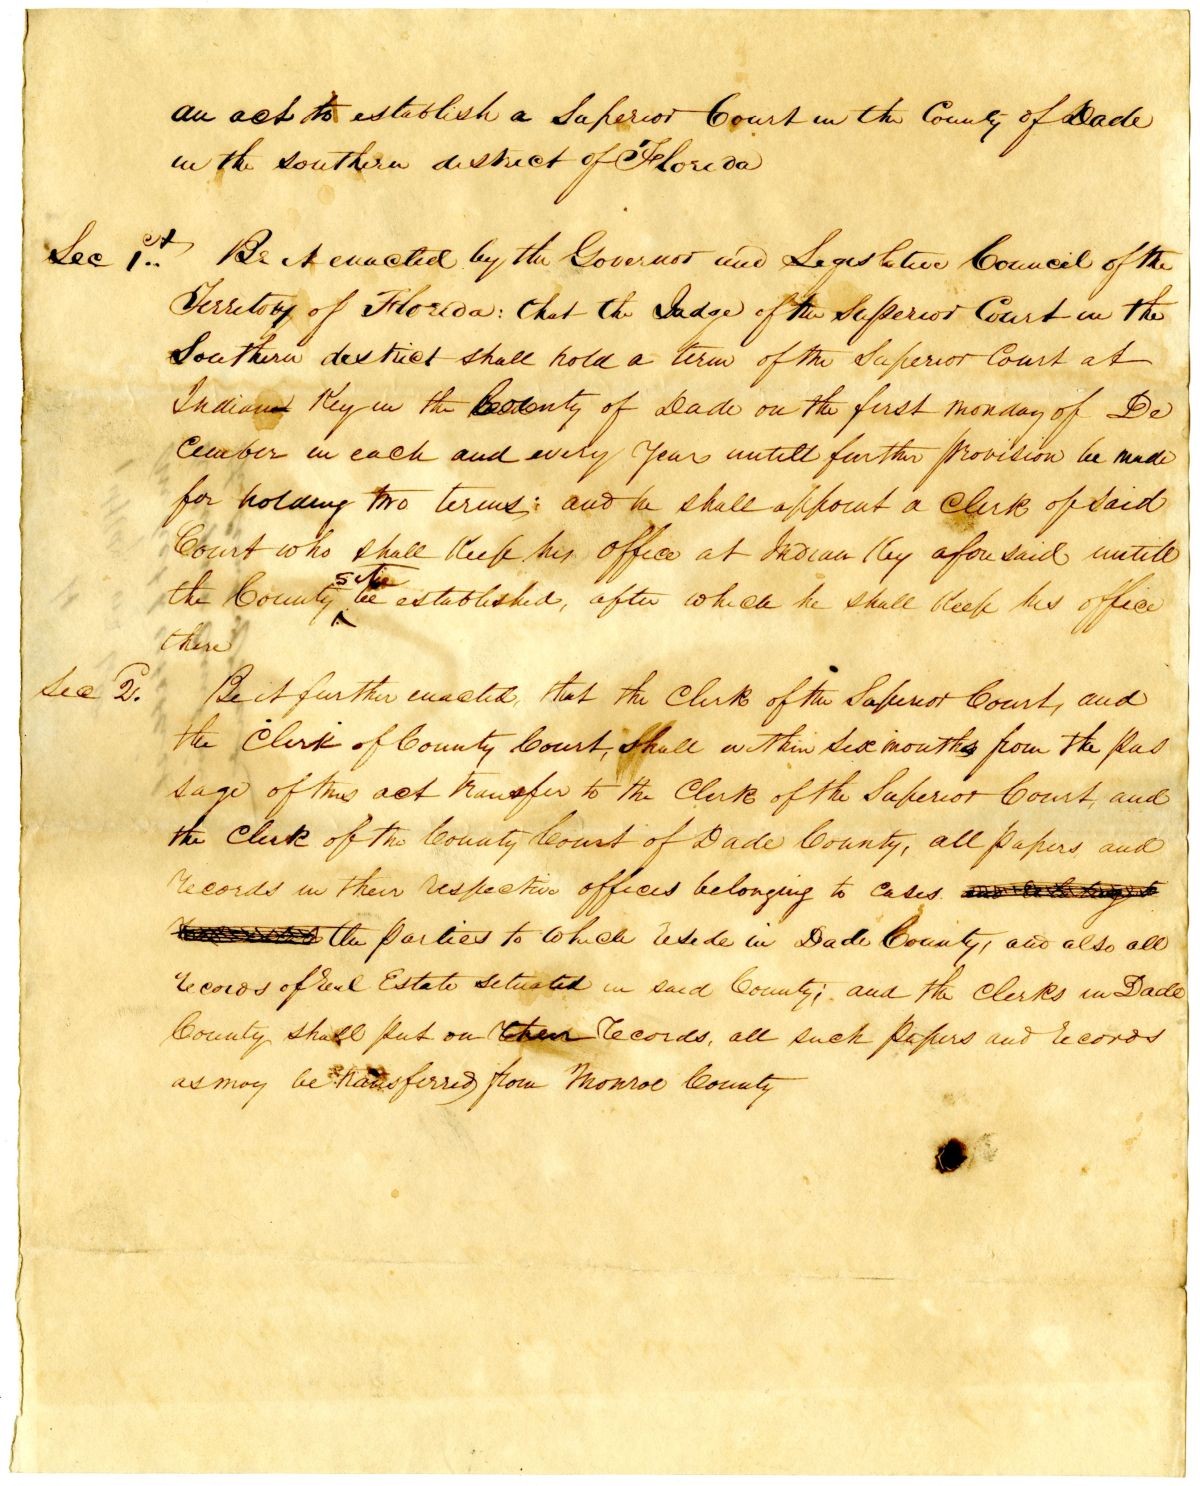 an act to establish a Superior Court in the County of Dade
in the southern district of Florida
Sec 1st. Be it enacted by the Governor and Legislative Council of the
Territory of Florida: that the Judge of the Superior Court in the
Southern district shall hold a term of the Superior Court at
Indian Key in the County of Dade on the first monday of De
cember in each and every Year untill further provision be made
for holding two terms; and he shall appoint a Clerk of said
Court who shall Keep his office at Indian Key aforesaid untill
the County site be established, after which he shall Keep his office
there
Sec 2d. Be it further enacted, that the Clerk of the Superior Court, and
the Clerk of County Court, shall within six months from the pas
sage of this act transfer to the Clerk of the Superior Court, and
the Clerk of the County Court of Dade County, all papers and
records in their respective offices belonging to cases
the parties to which reside in Dade County, and also all
records of real Estate situated in said County; and the Clerks in Dade
County shall put on their records, all such papers and records
as may be transferred from Monroe County